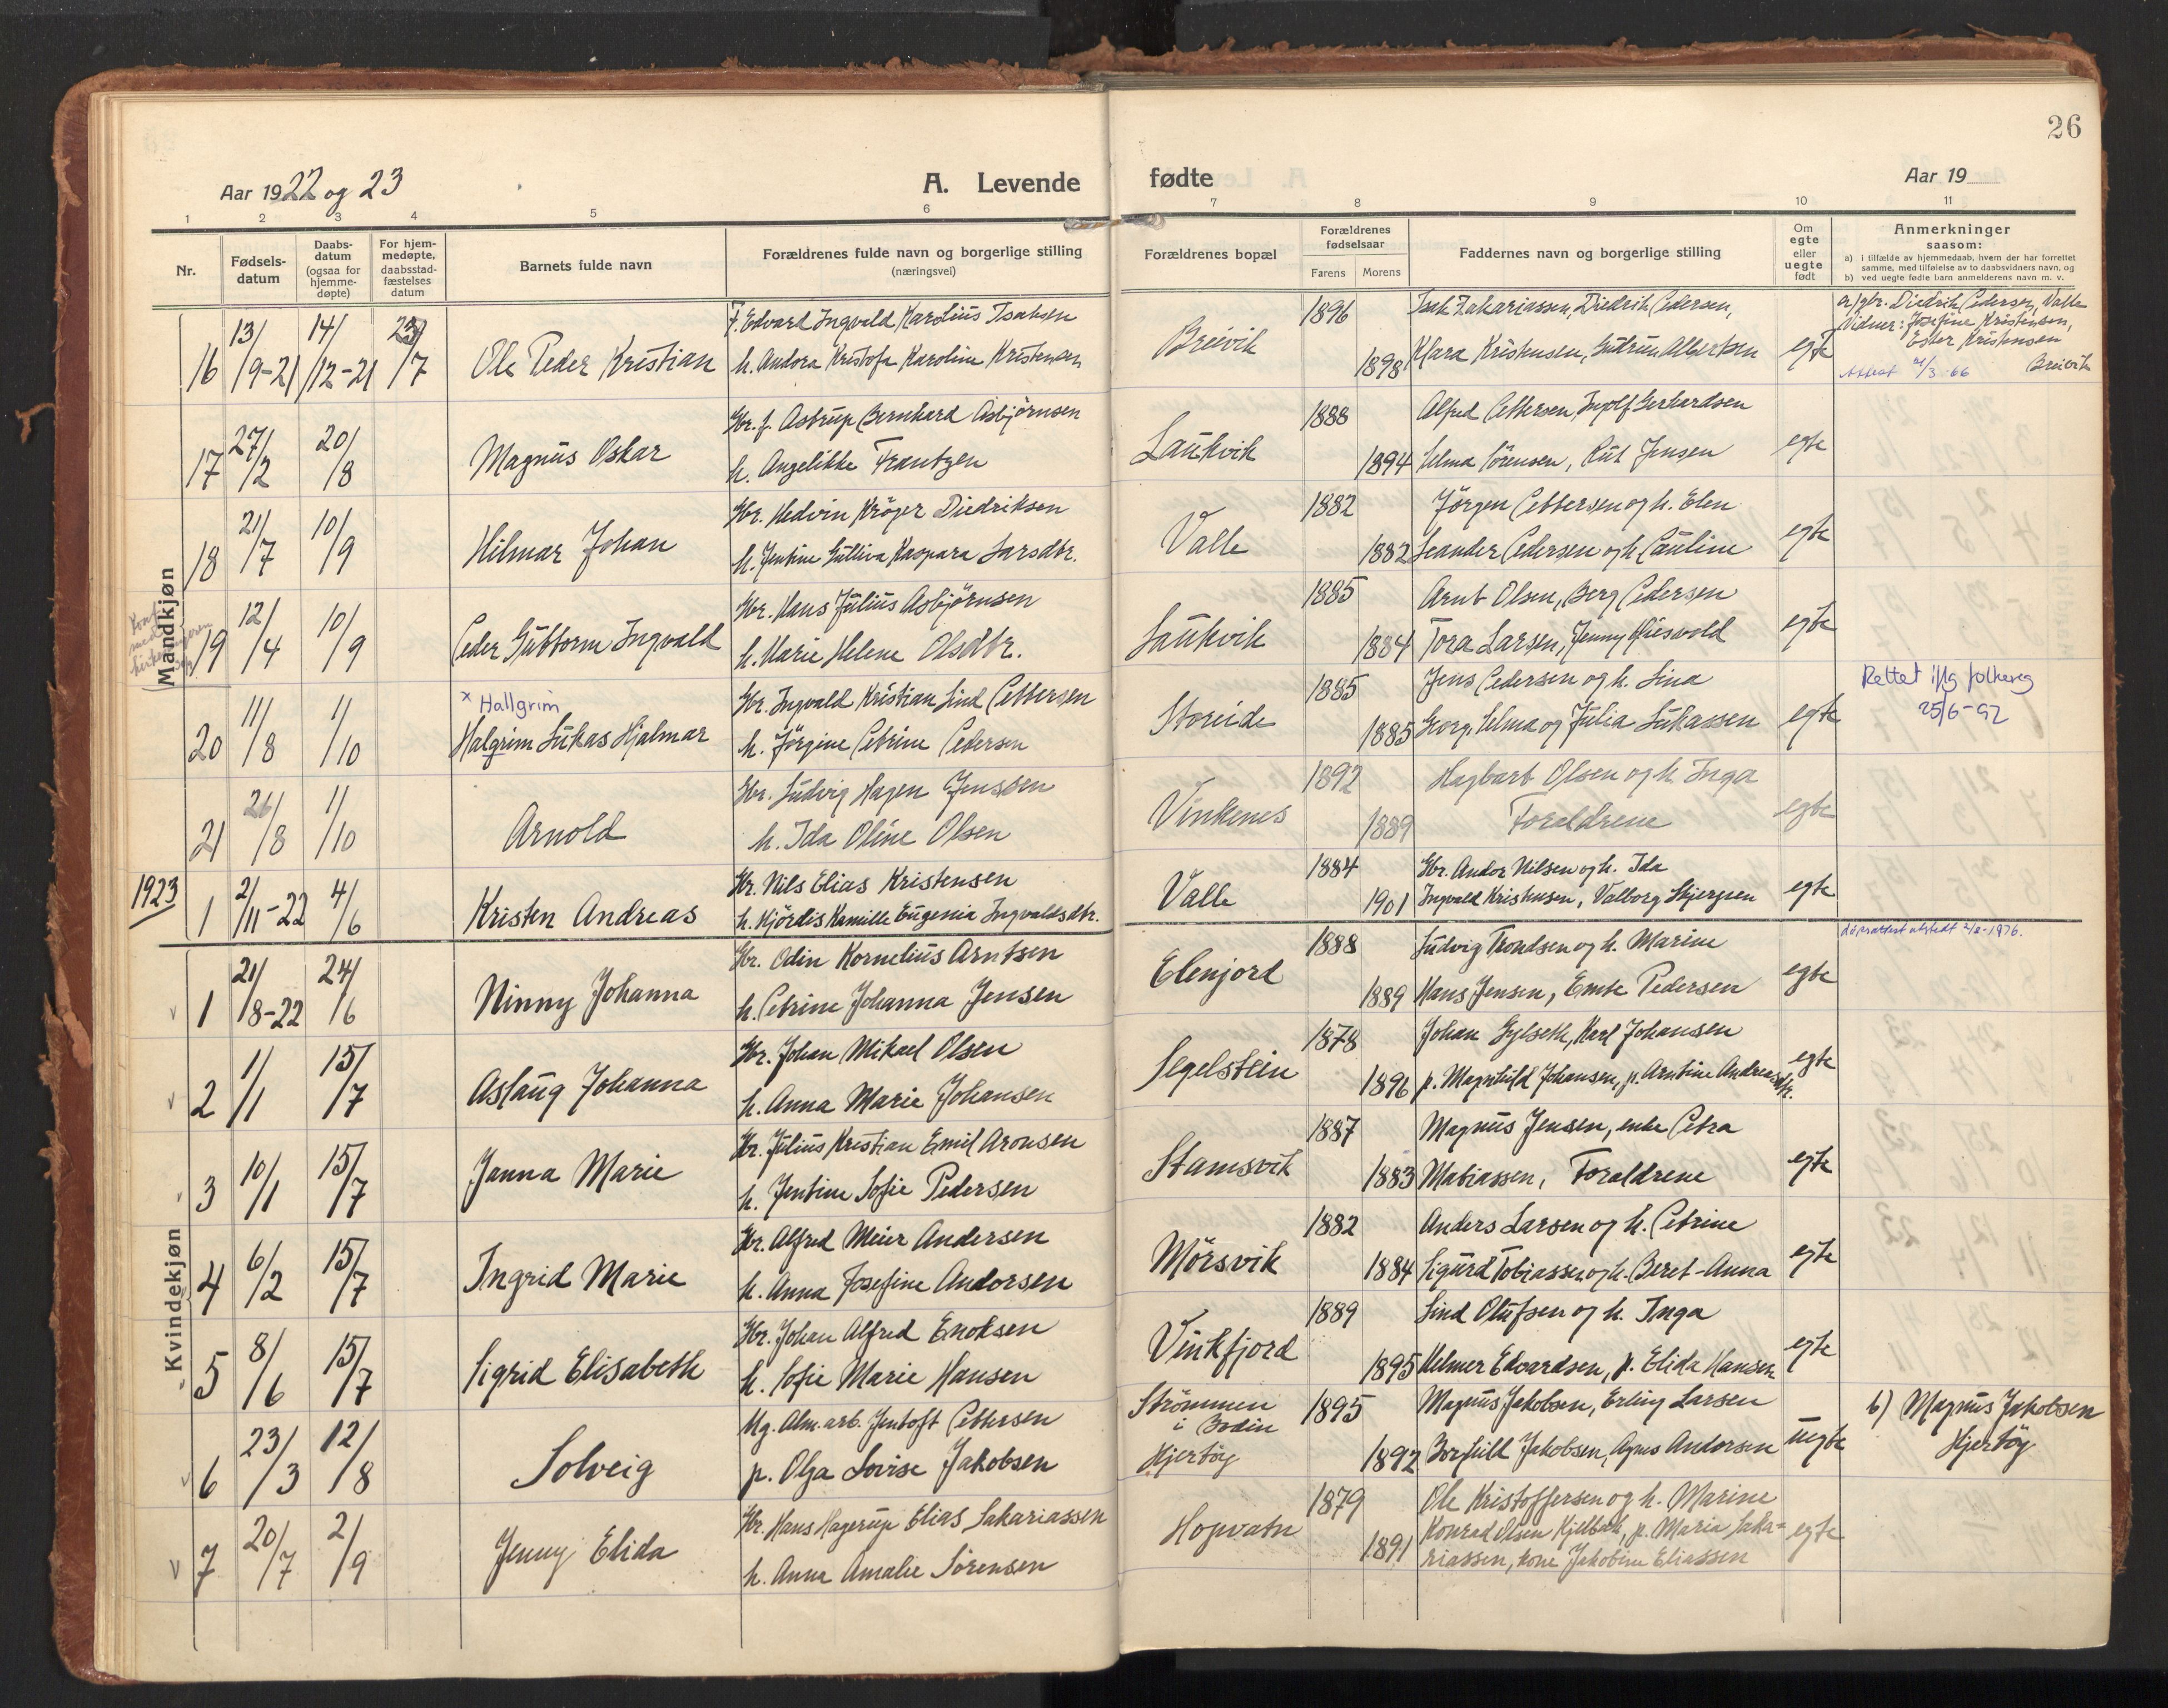 26
Aar 1922 og 23
A. Levende
fødte
Aar 19
1 2 3 4 5 6 7 8 9 10 11
Nr.
Fødselsdatum
Daabsdatum (ogsaa for hjemmedøpte)
For hjemmedøpte, daabsstadfæstelses datum
Barnets fulde navn
Forældrenes fulde navn og borgerlige stilling (næringsvei)
Forældrenes bopæl
Forældrenes fødselsaar
Farens Morens
Faddernes navn og borgerlige stilling
Om egte eller uegte født
Anmerkninger
saasom:
a) i tilfælde av hjemmedaab, hvem der har forrettet samme, med tilføielse av to daabsvidners navn, og
b) ved uegte fødte barn anmelderens navn m. v.
Mandkjøn
16 13/9-21 14/12-21 23/7 Ole Peder Kristian
F. Edvard Ingvald Karolius Isaksen
h. Andora Kristofa Karoline Kristensen
Breivik 1896 1898
Isak Zakariassen, Diedrik Pedersen,
Klara Kristensen, Gudrun Albertsen
egte
Diedrik Pedersen, Valle
Vidner: Josefine Kristensen,
Ester Kristensen
Breivik
Attest 21/3-66
17 27/2 20/8 Magnus Oskar
Gbr. f. Astrup Bernhard Asbjørnsen
h. Angelikke Frantzen
Laukvik 1888 1894
Alfred Pettersen, Ingolf Gerhardsen
Selma Sørensen, Rut Jensen
egte
18 21/7 10/9 Hilmar Johan
Gbr. Hedvin Krøger Diedriksen
h. Jentine Gulliva Kaspara Larsdtr.
Valle 1882 1882
Jørgen Pettersen og h. Elen
Leander Pedersen og h. Pauline
egte
19 12/4 10/9 Peder Guttorm Ingvald
Gbr. Hans Julius Asbjørnsen
h. Marie Helene Olsdtr.
Laukvik 1885 1884
Arnt Olsen, Berg Pedersen
Tora Larsen, Jenny
egte
20 11/8 1/10 x Hallgrim
Halgrim Lukas Hjalmar
Gbr. Ingvald Kristian Lind Pettersen
h. Jørgine Petrine Pedersen
Storeide 1885 1885
Jens Pedersen og h. Lina
Georg, Selma og Julia Lukassen
egte
Rettet iflg folkereg
25/6-92
21 26/8 1/10 Arnold
Gbr. Ludvig Hagen Jenssen
h. Ida Oline Olsen
Vinkenes 1892 1889
Hagbart Olsen og h. Inga
Forældrene
egte
1923
1 2/11-22 4/6 Kristen Andreas
Gbr. Nils Elias Kristensen
h. Hjördis Kamille Eugenia Ingvaldsdtr.
Valle 1884 1901
Gbr. Andor Nilsen og h. Ida
Ingvald Kristensen, Valborg Skjergsen
egte
Kvindekjøn
1 21/8-22 24/6 Ninny Johanna
Gbr. Odin Kornelius Arntsen
h. Petrine Johanna Jensen
Elenjord 1888 1889
Ludvig Trondsen og h. Marine
Hans Jensen, Emte Pedersen
egte
dåpsattest utstedt 2/2-1976.
2 1/1 15/7 Aslaug Johanna
Gbr. Johan Mikael Olsen
h. Anna Marie Johansen
Segelstein 1878 1896
Johan Gylseth, Karl Johansen
p. Magnhild Johansen, p. Arntine Andreasdtr.
egte
3 10/1 15/7 Janna Marie
Gbr. Julius Kristian Emil Aronsen
h. Jentine Sofie Pedersen
Stamsvik 1887 1883
Magnus Jensen, enke Petra
Matiassen, Forældrene
egte
4 6/2 15/7 Ingrid Marie
Gbr. Alfred Meier Andersen
h. Anna Josefine Andorsen
Mörsvik 1882 1884
Anders Larsen og h. Petrine
Sigurd Tobiassen og h. Beret-Anna
egte
5 8/6 15/7 Sigrid Elisabeth
Gbr. Johan Alfred Enoksen
h. Sofie Marie Hansen
Vinkfjord 1889 1895
Lind Olufsen og h. Inga
Helmer Edvardsen, p. Elida Hansen
egte
6 23/3 12/8 Solveig
Ug. Alm. arb. Jentoft Pettersen
p. Olga Lovise Jakobsen
Strömmen
i Bodin
Hjertöy
1895 1892
Magnus Jakobsen, Erling Larsen
Borghild Jakobsen, Agnes Andorsen
uegte
b) Magnus Jakobsen
Hjertöy
7 20/7 2/9 Jenny Elida
Gbr. Hans Hagerup Elias Sakariassen
h. Anna Amalie Sörensen
Hopvatn 1879 1891
Ole Kristoffersen og h. Marine
Konrad Olsen Kjelbotn, p. Maria Saka-
riassen, kone Jakobine Eliassen
egte